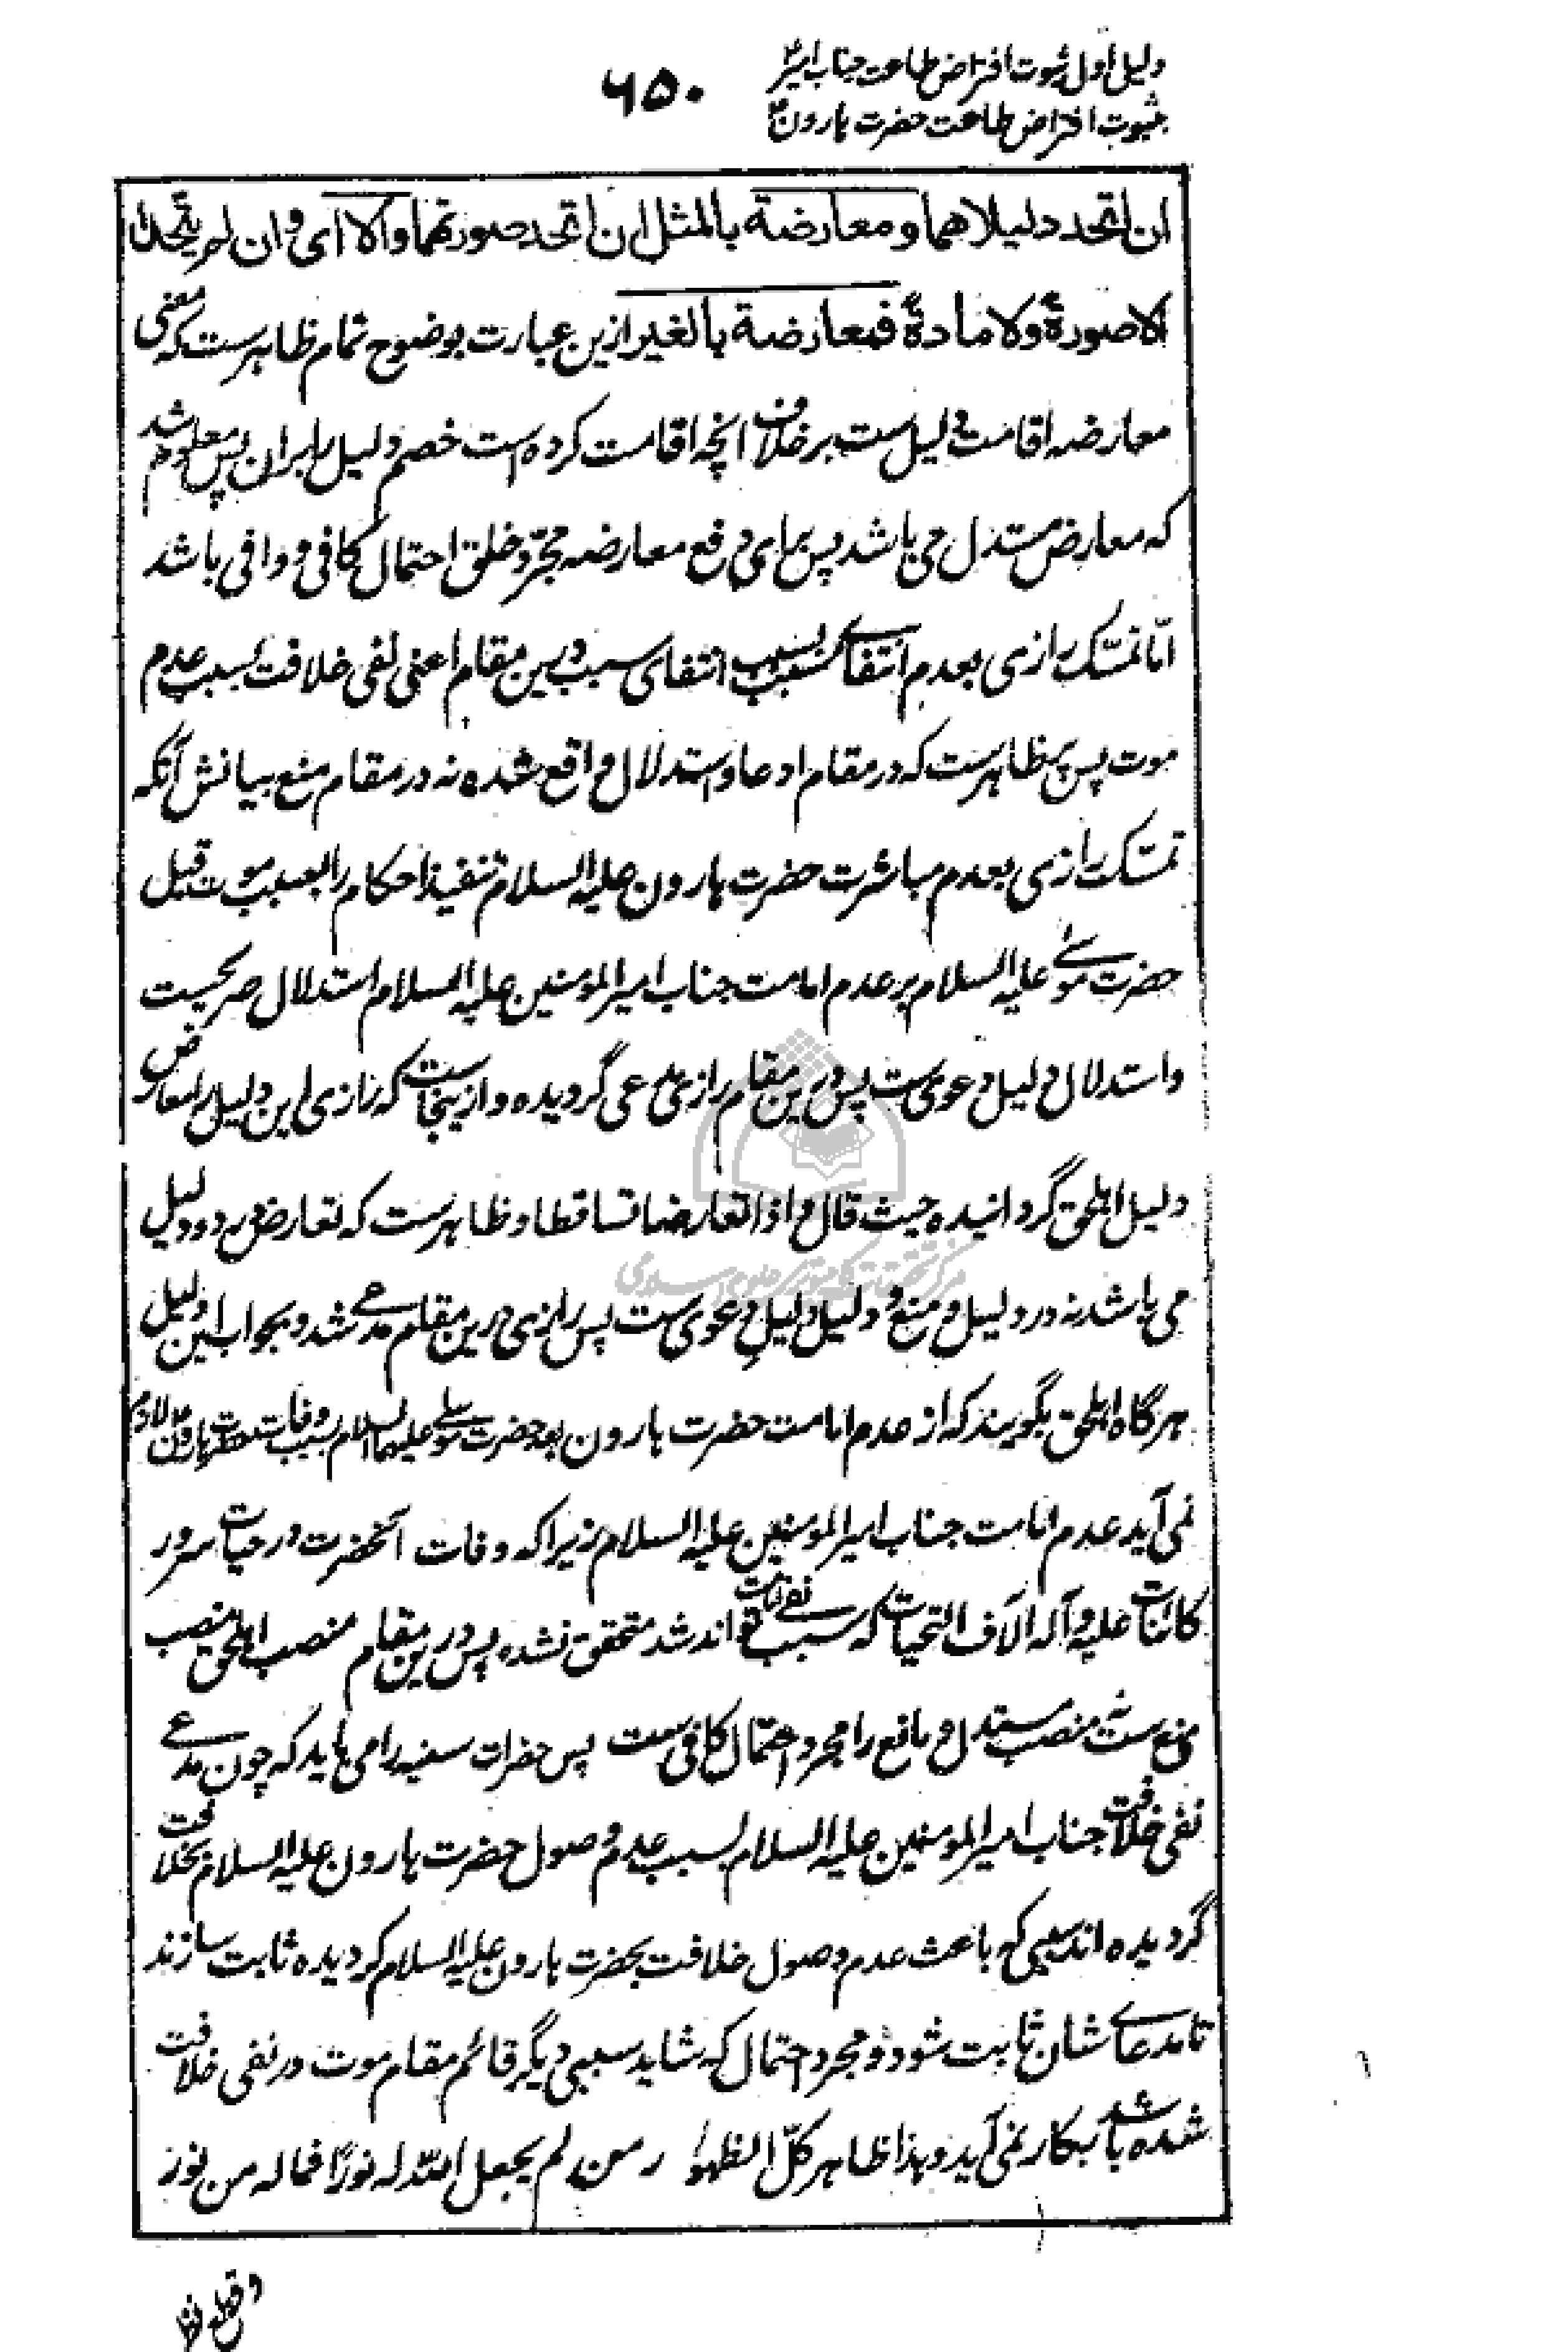 دلیل اول ثبوت افتراض طاعت جناب امیرؑ
۶۵۰
بثبوت افتراض طاعت حضرت هارونؑ
ان اتحد دلیلاهما ومعارضة بالمثل ان اتحد صورتهما والا ای وان لم یتحدا
لا صورة ولا مادة فمعارضة بالغیر ازین عبارت بوضوح تمام ظاهرست که معنی
معارضه اقامت دلیل ست برخلاف انچه اقامت کرده است خصم دلیل را بران پس معلوم شد
که معارض مستدل می باشد پس برای دفع معارضه مجرّد خلق احتمال کافی و وافی باشد
امّا تمسّک رازی بعدم انتفای مسبب بسبب انتفای سبب درین مقام اعنی نفی خلافت بسبب عدم
موت پس پر ظاهرست که در مقام ادعا و استدلال واقع شده نه در مقام منع بیانش آنکه
تمسّک رازی بعدم مباشرت حضرت هارون علیه السلام تنفیذ احکام را بسبب موت قبل
حضرت موسی علیه السلام بر عدم امامت جناب امیرالمومنین علیه السلام استدلال صریحست
واستدلال دلیل دعوی ست پس درین مقام رازی مدعی گردیده و ازینجاست که رازی این دلیل را معارض
دلیل اهلحق گردانیده حیث قال و اذا تعارضا تساقطا و ظاهرست که تعارض در دو دلیل
می باشد نه در دلیل و منع و دلیل دلیلِ دعوی ست پس رازی درین مقام مدعی شد و بجواب این دلیل
هرگاه اهلحق بگویند که از عدم امامت حضرت هارون بعد حضرت موسی علیهما السلام بسبب وفات حضرت هارونؑ لازم
نمی آید عدم امامت جناب امیرالمومنین علیه السلام زیرا که وفات آنحضرت در حیات سرور
کائنات علیه و آله الاَف التحیات که سبب نفی امامت تواند شد متحقق نشده پس درین مقام منصب اهلحق منصب
منع ست نه منصب مستدل و مانع را مجرد احتمال کافی ست پس حضرات سنیه را می باید که چون مدعی
نفی خلافت جناب امیرالمومنین علیه السلام بسبب عدم وصول حضرت هارون علیه السلام بخلافت
گردیده اند سببی که باعث عدم وصول خلافت بحضرت هارون علیه السلام گردیده ثابت سازند
تا مدعای شان ثابت شود و مجرد احتمال که شاید سببی دیگر قائم مقام موت در نفی خلافت
شده باشد بکار نمی آید و هذا ظاهر کلّ الظهور ومن لم یجعل الله له نورًا فما له من نور